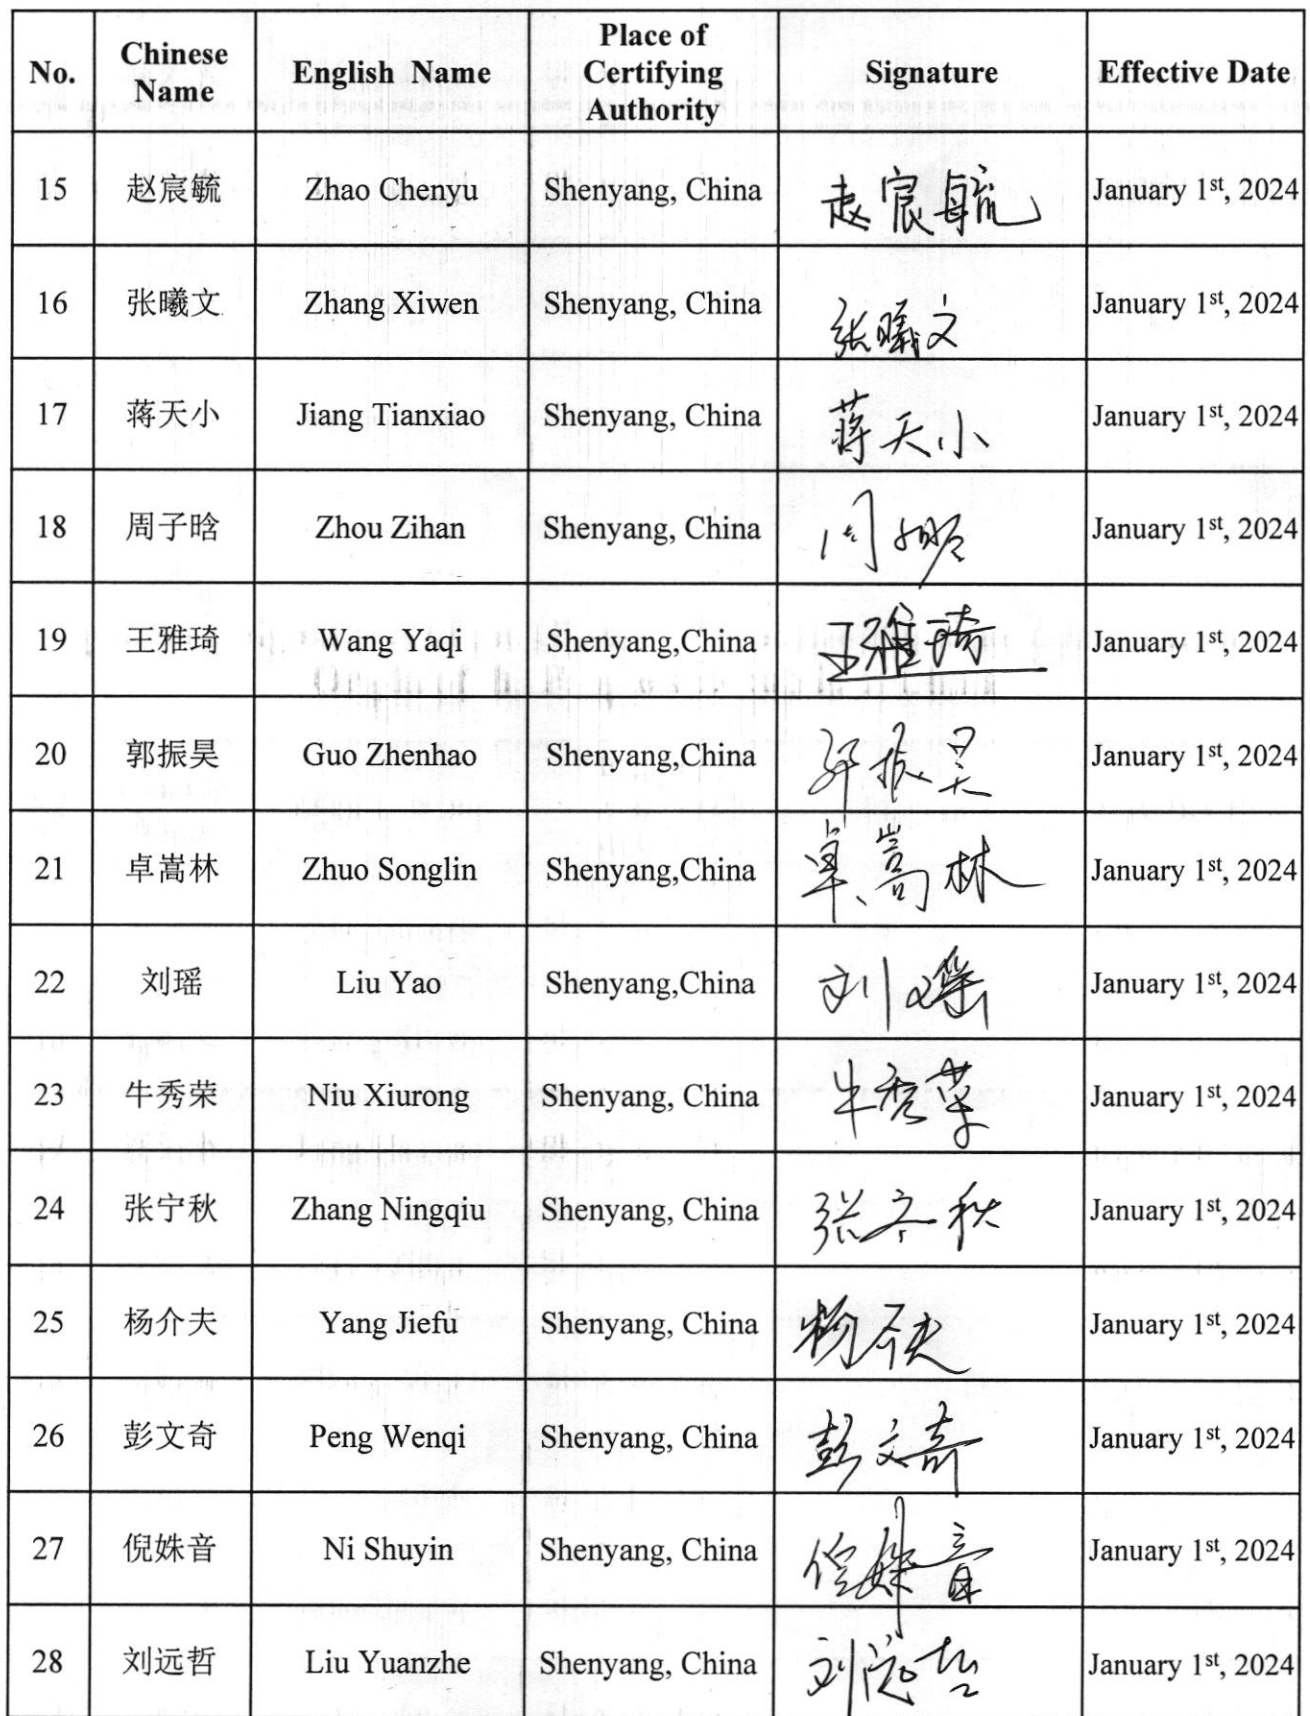 No. Chinese Name English Name Place of Certifying Authority Signature Effective Date
15 赵宸毓 Zhao Chenyu Shenyang, China 赵宸毓 January 1st, 2024
16 张曦文 Zhang Xiwen Shenyang, China 张曦文 January 1st, 2024
17 蒋天小 Jiang Tianxiao Shenyang, China 蒋天小 January 1st, 2024
18 周子晗 Zhou Zihan Shenyang, China 周子晗 January 1st, 2024
19 王雅琦 Wang Yaqi Shenyang,China 王雅琦 January 1st, 2024
20 郭振昊 Guo Zhenhao Shenyang,China 郭振昊 January 1st, 2024
21 卓嵩林 Zhuo Songlin Shenyang,China 卓嵩林 January 1st, 2024
22 刘瑶 Liu Yao Shenyang,China 刘瑶 January 1st, 2024
23 牛秀荣 Niu Xiurong Shenyang, China 牛秀荣 January 1st, 2024
24 张宁秋 Zhang Ningqiu Shenyang, China 张宁秋 January 1st, 2024
25 杨介夫 Yang Jiefu Shenyang, China 杨介夫 January 1st, 2024
26 彭文奇 Peng Wenqi Shenyang, China 彭文奇 January 1st, 2024
27 倪姝音 Ni Shuyin Shenyang, China 倪姝音 January 1st, 2024
28 刘远哲 Liu Yuanzhe Shenyang, China 刘远哲 January 1st, 2024